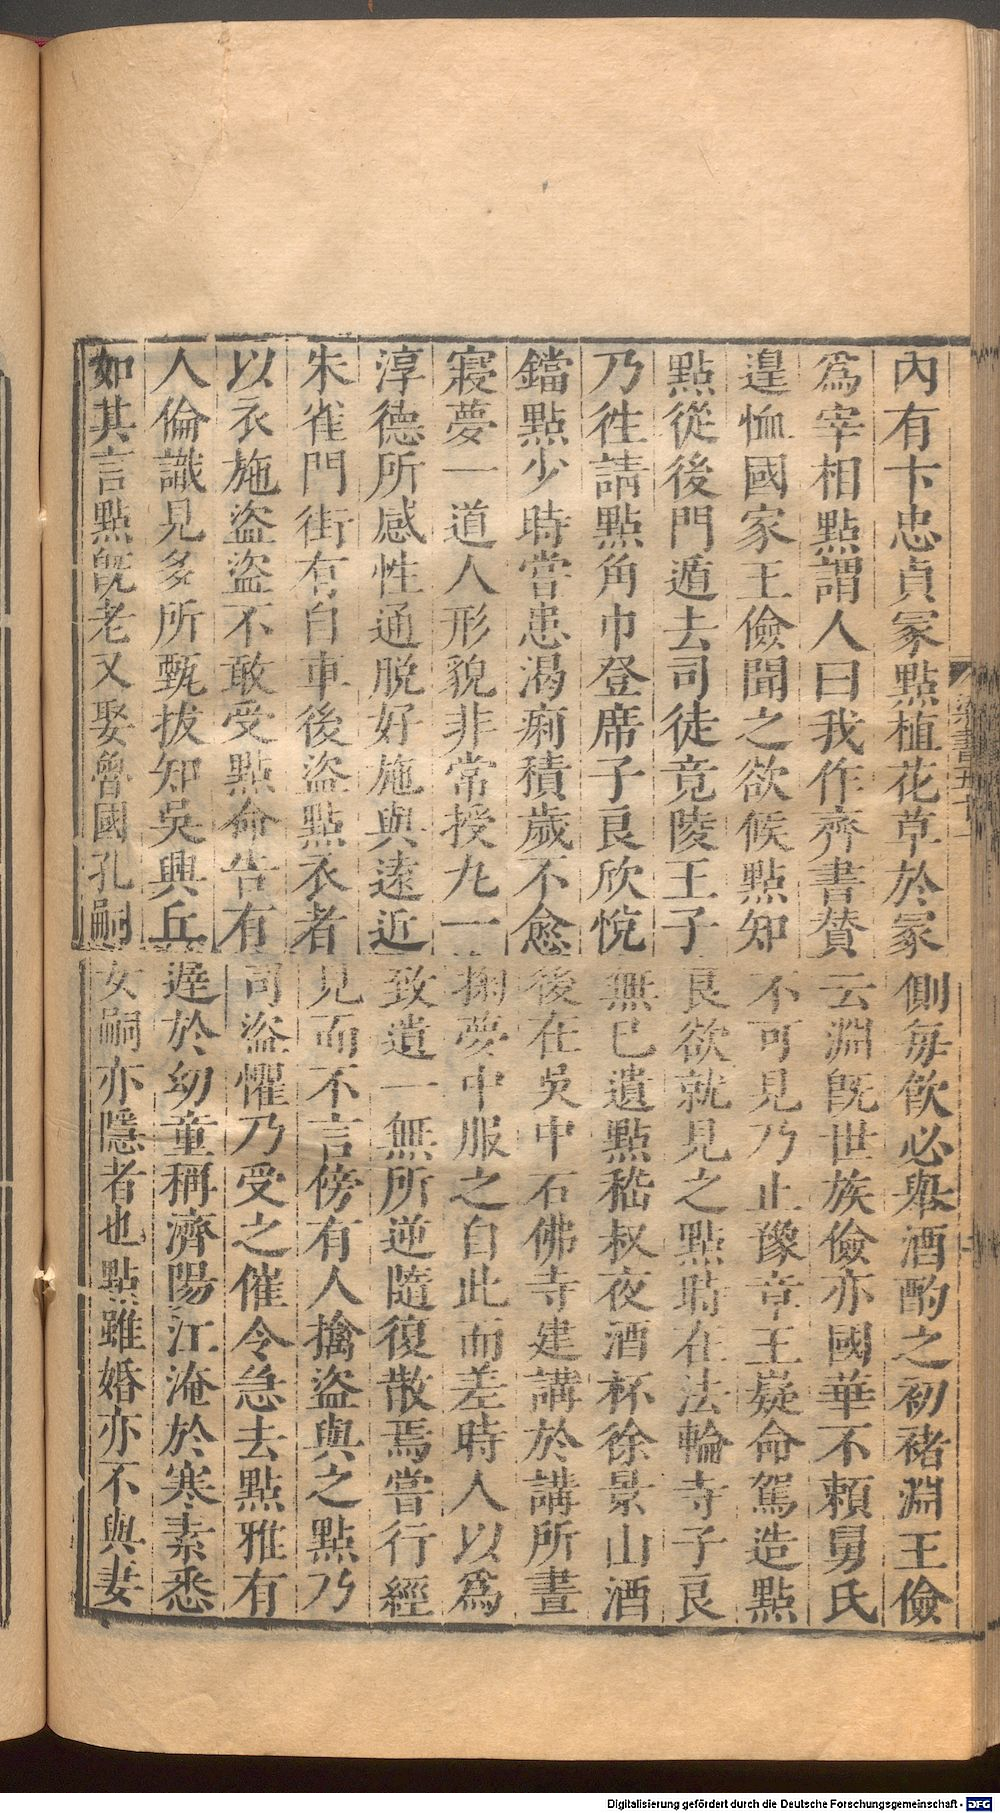 內有卞忠貞冢點植花草於冢側每飮必舉酒酌之初褚淵王儉
爲宰相點謂人曰我作齊書贊云淵旣世族儉亦國華不賴舅氏
遑恤國家王儉聞之欲候點知不可見乃止豫章王嶷命駕造點
點從後門遁去司徒竟陵王子良欲就見之點時在法輪寺子良
乃徃請點角巾登席子良欣悅無已遺點嵇叔夜酒杯徐景山酒
鐺點少時嘗患渴痢積歲不愈後在吳中石佛寺建講於講所晝
寢夢一道人形貌非常授丸一掬夢中服之自此而差時人以爲
淳德所感性通脫好施與遠近致遺一無所逆隨復散焉嘗行經
朱雀門街有自車後盜點衣者見而不言傍有人擒盜與之點乃
以衣施盜盜不敢受點命告有司盜懼乃受之催令急去點雅有
人倫識見多所甄拔知吳興丘遟於幼童稱濟陽江淹於寒素悉
如其言點旣老又娶魯國孔嗣女嗣亦隱者也點雖婚亦不與妻
Digitalisierung gefördert durch die Deutsche Forschungsgemeinschaft - DFG